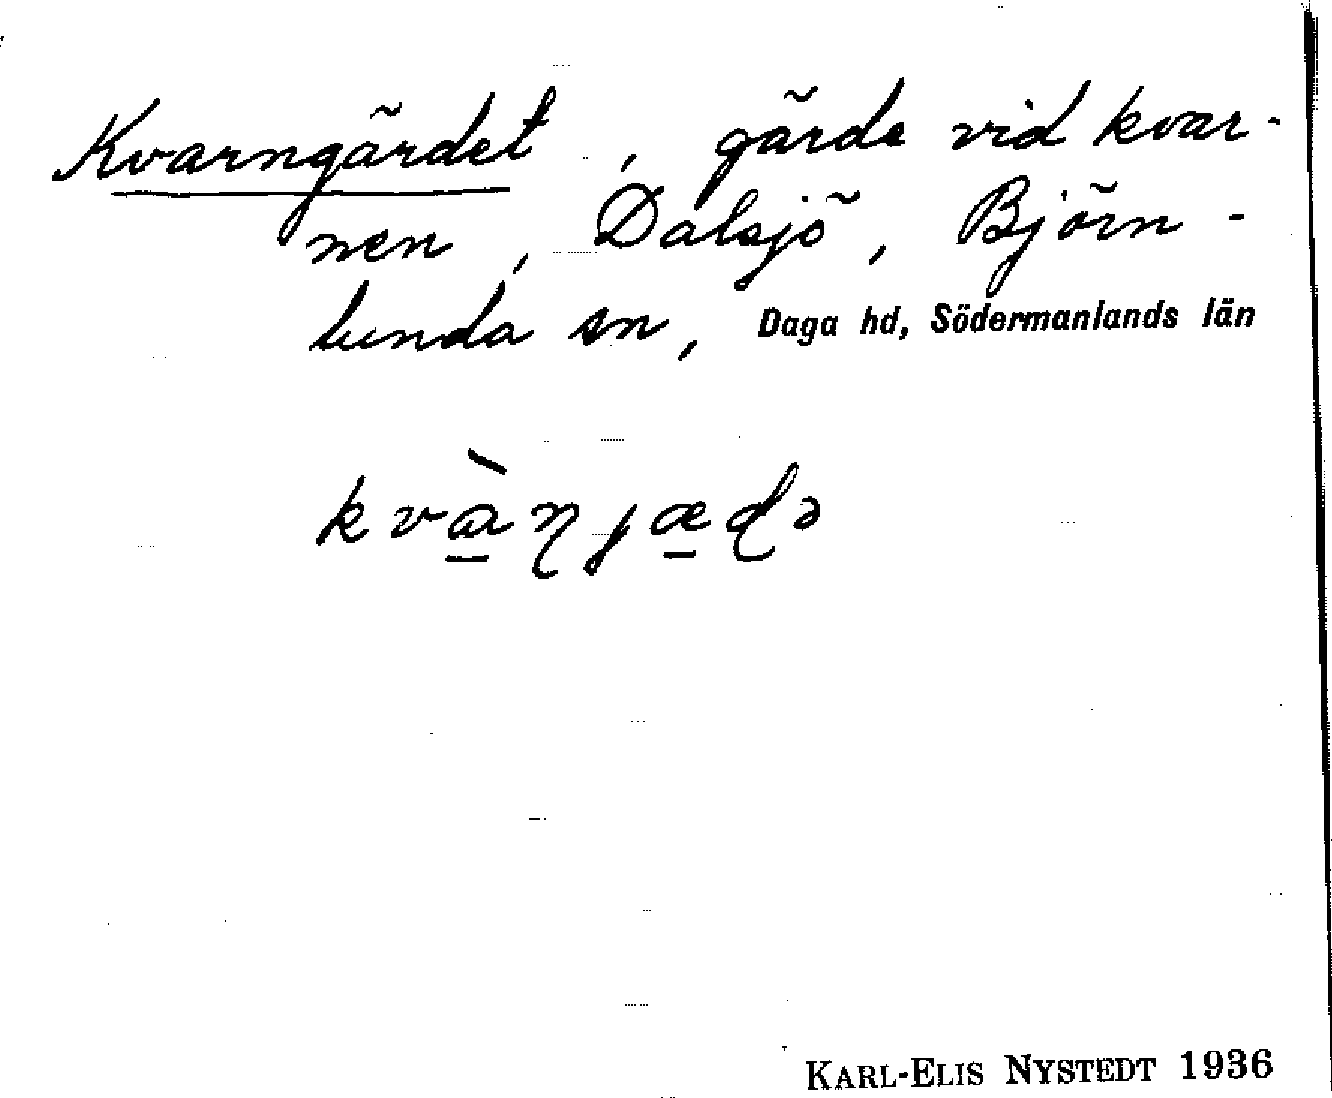 Kvarngärdet, gärde vid kvar-
nen, Dalsjö, Björn-
lunda sn, Daga hd, Södermanlands län
kvàɳɟæɖə
KARL-ELIS NYSTEDT 1936